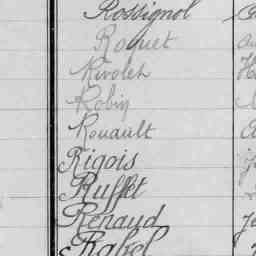 Rossignol
Roquet
Rivolet
Robin
Rouault
Rigois
Ruffet
Renaud
Rabel